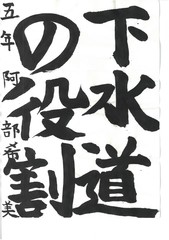 下水道
の役割
五年 阿部希美